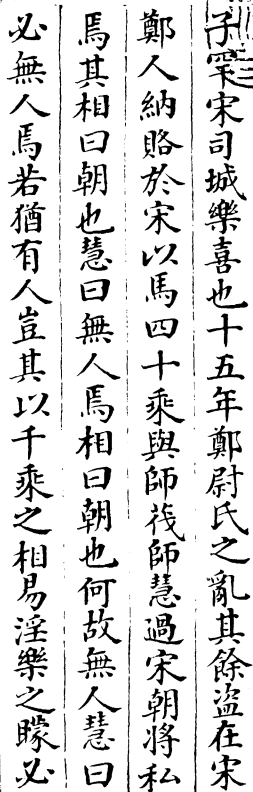 子罕宋司城樂喜也十五年鄭尉氏之亂其餘盗在宋
鄭人納賂於宋以馬四十乘與師茷師慧過宋朝將私
焉其相曰朝也慧曰無人焉相曰朝也何故無人慧曰
必無人焉若猶有人豈其以千乘之相易淫樂之矇必